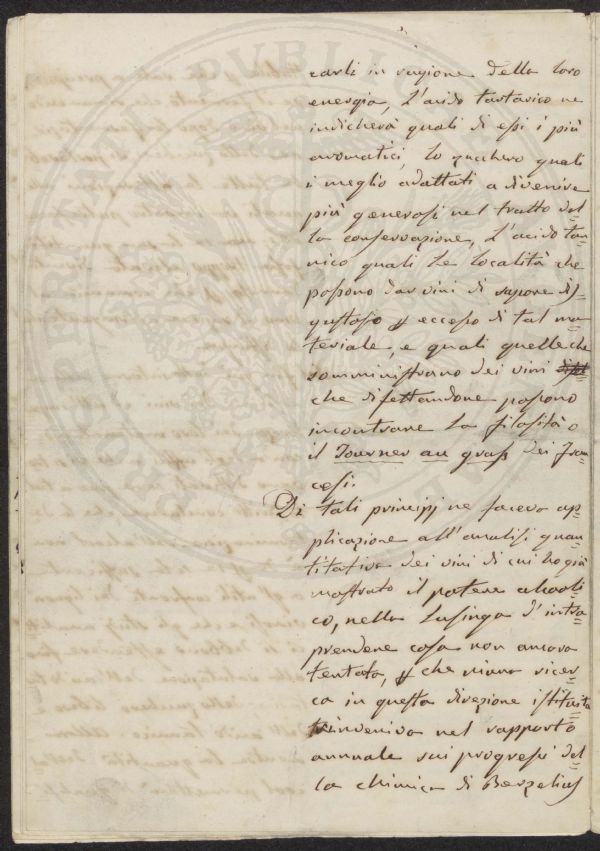 carli in ragione della loro
energia, L'acido tartarico ne
indicherà quali di essi i più
aromatici, lo zucchero quali
i meglio adattati a divenire
più generosi nel tratto del=
la conservazione, L'acido tan=
nico quali le località che
possono dar vini di sapore dis=
gustoso p eccesso di tal ma=
teriale, e quali quelle che
somministrano dei vini
che difettandone possono
incontrare la filosità o
il Tourner au grass dei Fran=
cesi.
Di tali principj ne faceva ap=
plicazione all'analisi quan=
titativa dei vini di cui ho già
mostrato il potere alcooli=
co, nella lusinga d'intra=
prendere cosa non ancora
tentata, p che niuna ricer=
ca in questa direzione istituita
rinveniva nel rapporto
annuale sui progressi del=
la chimica di Berzelius
PROSPERITATI PUBLICAE